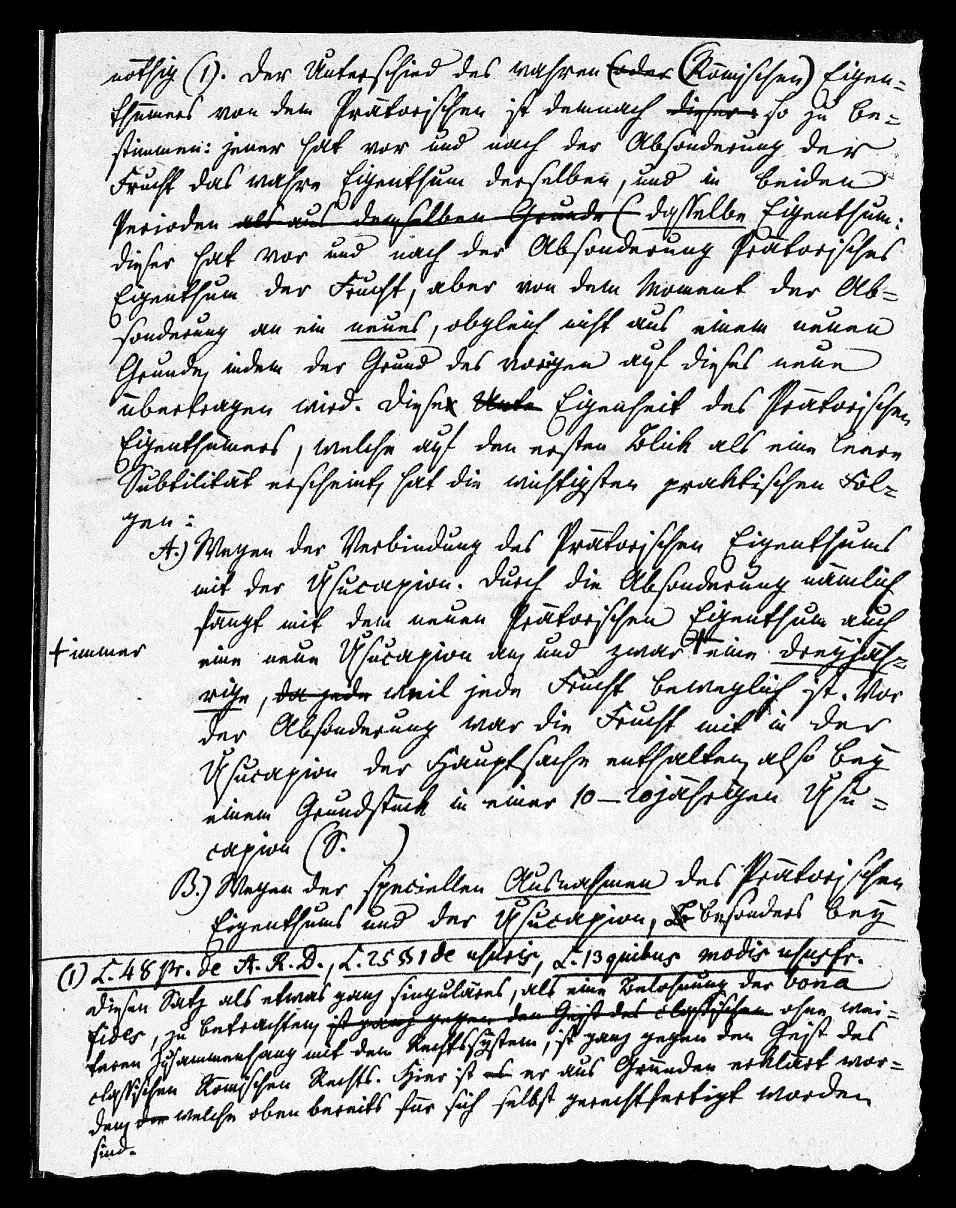 nöthig (1). Der Unterschied des wahren (oder (Römischen) Eigen-
thümers von dem Prätorischen ist demnach dieser: so zu be-
stimmen: jener hat vor und nach der Absonderung der
Frucht das wahre Eigenthum derselben, und in beiden
Perioden als aus demselben Grunde ( dasselbe Eigenthum:
dieser hat vor und nach der Absonderung Prätorisches
Eigenthum der Frucht, aber von dem Moment der Ab-
sonderung an ein neues, obgleich nicht aus einem neuen
Grunde, indem der Grund des vorigen auf dieses neue
übertragen wird. Diese Unte Eigenheit des Prätorischen
Eigenthümers, welche auf den ersten Blick als eine leere
Subtilität erscheint, hat die wichtigsten praktischen Fol-
gen:
A.) Wegen der Verbindung des Prätorischen Eigenthums
mit der Usucapion. Durch die Absonderung nämlich
fängt mit dem neuen Prätorischen Eigenthum auch
+ immer
eine neue Usucapion an, und zwar + eine dreyjäh-
rige, da jede weil jede Frucht beweglich ist. Vor
der Absonderung war die Frucht mit in der
Usucapion der Hauptsache enthalten, also bey
einem Grundstück in einer 10–20jährigen Usu-
capion (S. )
B.) Wegen der speciellen Ausnahmen des Prätorischen
Eigenthums und der Usucapion, besonders bey
(1) L. 48 pr. de A. R. D., L. 25 § 1 de usuris, L. 13 quibus modis ususfr.
Diesen Satz als etwas ganz singuläres, als eine Belohnung der bona
fides, zu betrachten, ist ganz gegen den Geist des classischen ohne wei-
teren Zusammenhang mit dem Rechtssystem, ist ganz gegen den Geist des
classischen Römischen Rechts. Hier ist es er aus Gründen erklärt wor-
den, die welche oben bereits für sich selbst gerechtfertigt worden
sind.